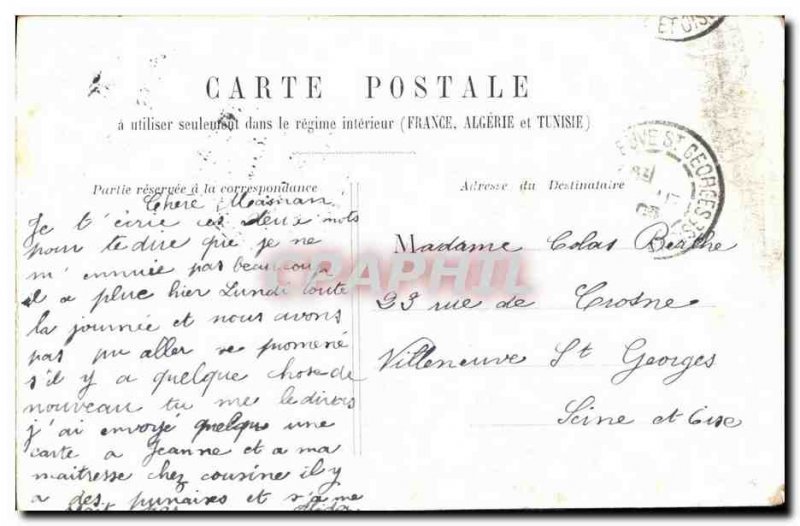 ET OISE
CARTE POSTALE
à utiliser seulement dans le régime intérieur (FRANCE, ALGÉRIE et TUNISIE)
EUVE ST GEORGES
Partie réservée à la correspondance
Adresse du Destinataire
Chere Maman
Je t'écrie ces deux mots
pour te dire que je ne
m'ennuie pas beaucoup
il a plue hier Lundi toute
la journée et nous avons
pas pu aller se promené
s'il y a quelque chose de
nouveau tu me le diras
j'ai envoyé quelqu une
carte a Jeanne et a ma
maitresse chez cousine il y
a des punaises et s'a me
Madame Colas Berthe
23 rue de Crosne
Villeneuve St Georges
Seine et Oise
CPAPHIL